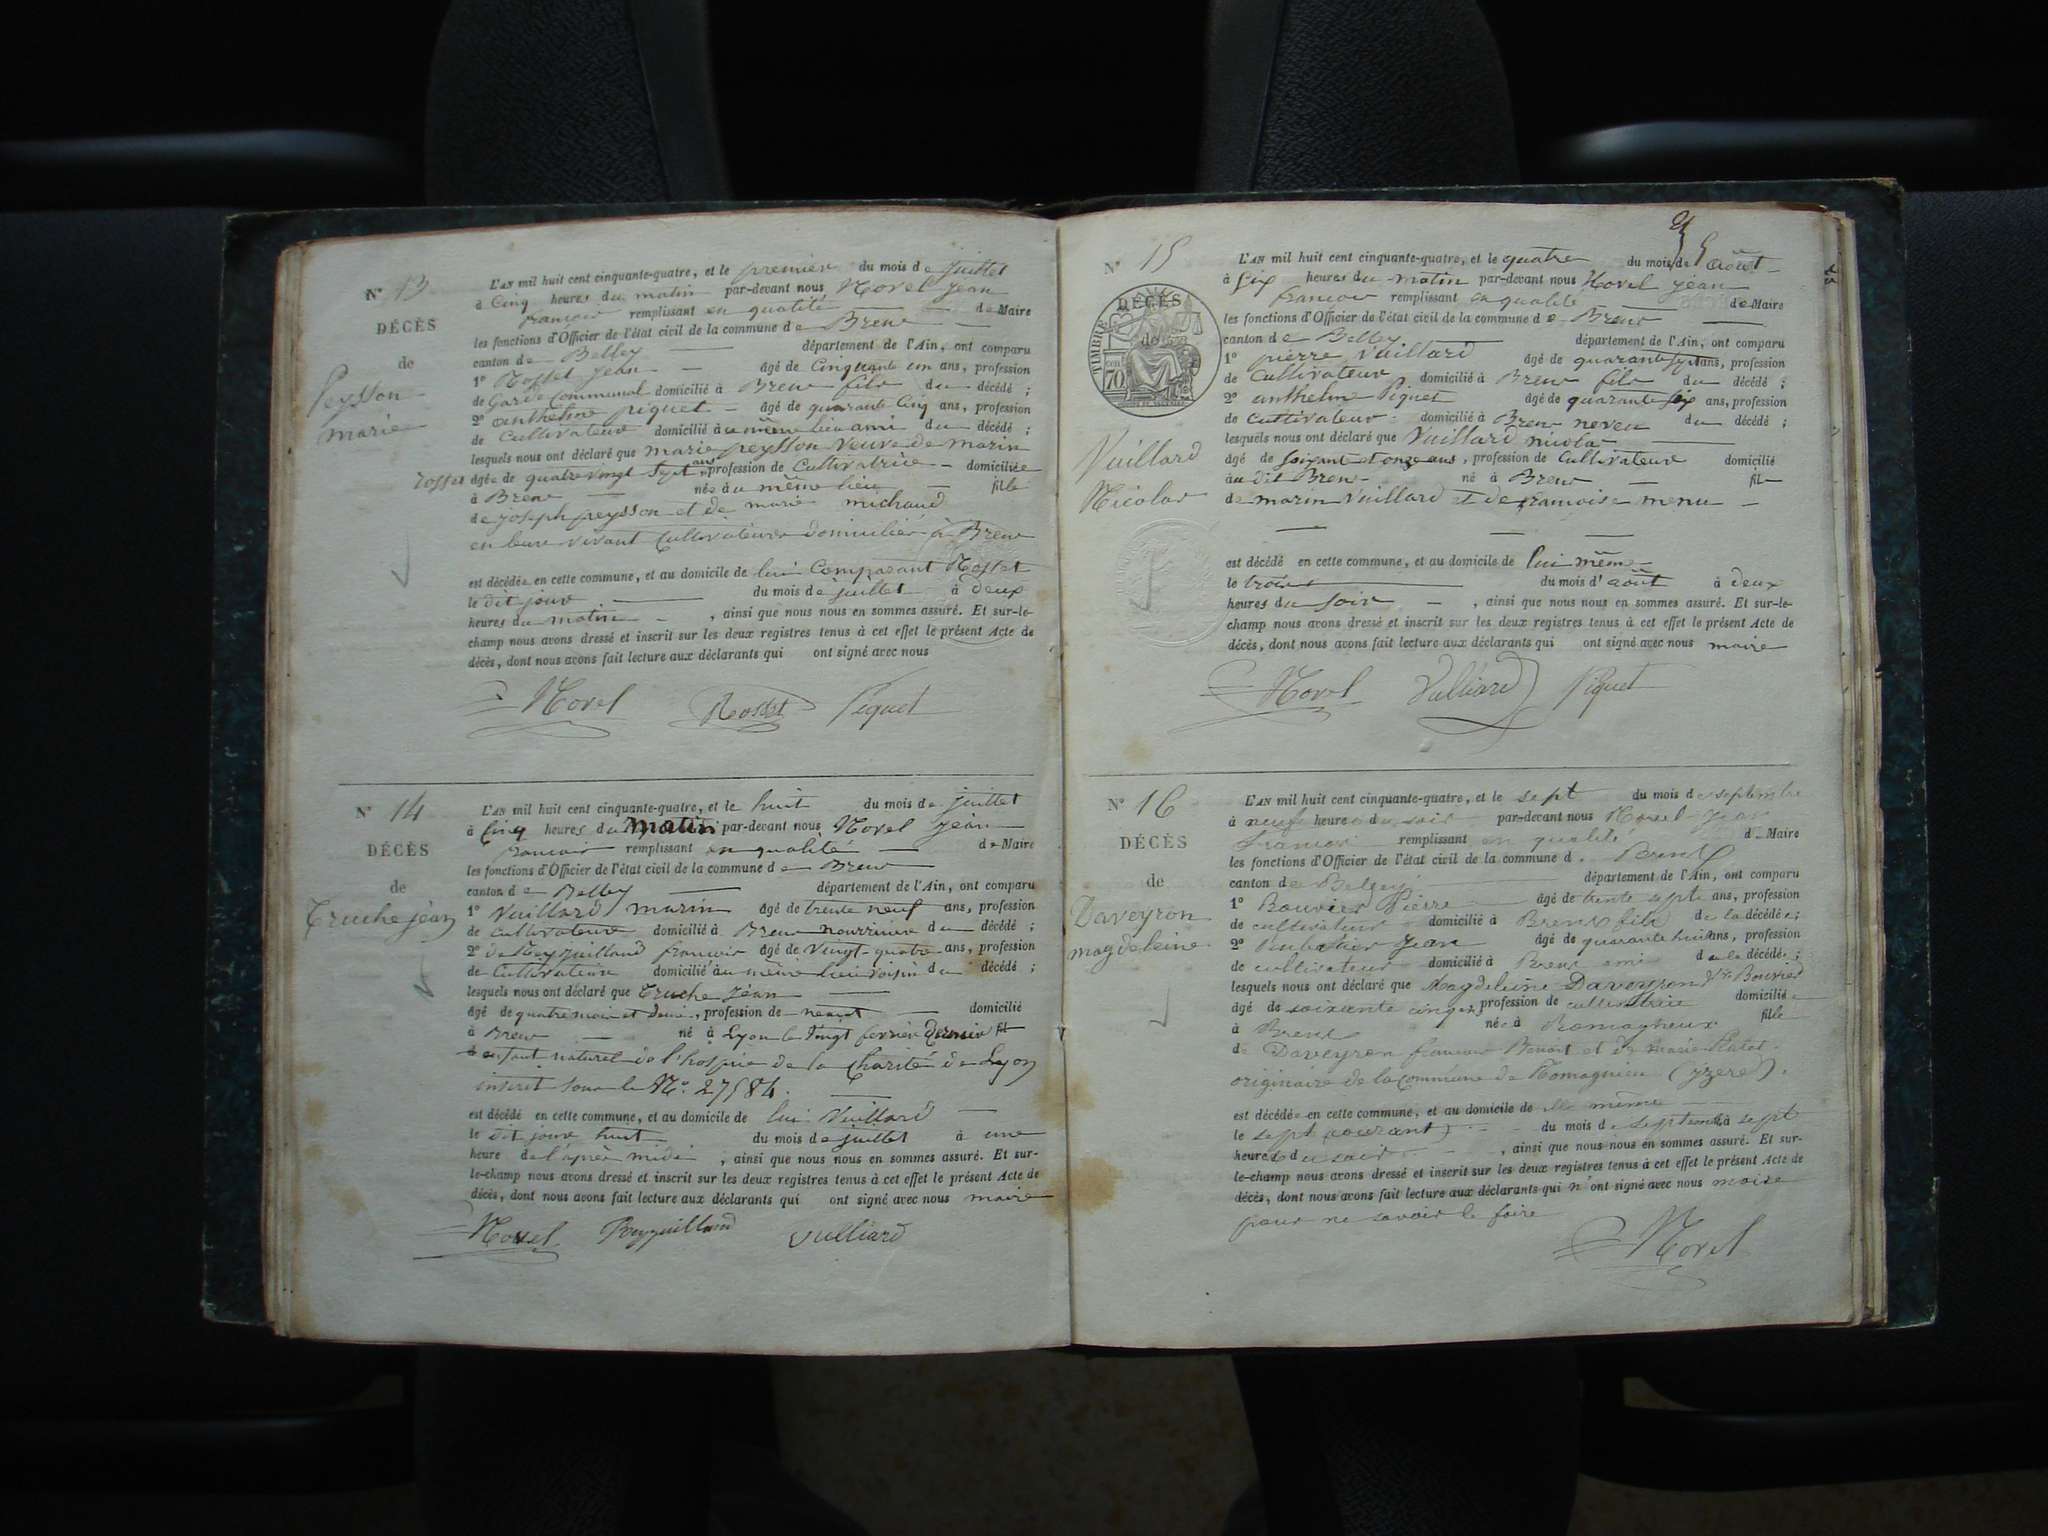 N° 13
DÉCÈS
de
Peysson
marie
L'AN mil huit cent cinquante-quatre, et le premier du mois de juillet
à Cinq heures du matin par-devant nous Morel jean
francois remplissant en qualité de Maire
les fonctions d'Officier de l'état civil de la commune de Brens
canton de Belley département de l'Ain, ont comparu
1° Rosset jean âgé de Cinquante un ans, profession
de Garde Communal domicilié à Brens fils du décédé ;
2° anthelme piquet âgé de quarante Cinq ans, profession
de Cultivateur domicilié à au même lieu ami du décédé ;
lesquels nous ont déclaré que marie peysson veuve de marin
rosset âgée de quatre vingt Sept ans, profession de Cultivatrice domiciliée
à Brens née à au même lieu fille
de joseph peysson et de marie michaud
en leurs vivant Cultivateurs domiciliés à Brens
est décédée en cette commune, et au domicile de lui Comparant Rosset
le dit jour du mois de juillet à deux
heures du matin , ainsi que nous nous en sommes assuré. Et sur-le-
champ nous avons dressé et inscrit sur les deux registres tenus à cet effet le présent Acte de
décès, dont nous avons fait lecture aux déclarants qui ont signé avec nous
Morel Rosset Piquet
N° 14
DÉCÈS
de
Truche jean
L'AN mil huit cent cinquante-quatre, et le huit du mois de juillet
à Cinq heures du matin par-devant nous Morel jean
francois remplissant en qualité de Maire
les fonctions d'Officier de l'état civil de la commune de Brens
canton de Belley département de l'Ain, ont comparu
1° Vuillard marin âgé de trente neuf ans, profession
de Cultivateur domicilié à Brens nourricier du décédé ;
2° francois âgé de Vingt-quatre ans, profession
de Cultivateur domicilié au même lieu voisin du décédé ;
lesquels nous ont déclaré que Truche jean
âgé de quatre mois et demi, profession de neant domicilié
à Brens né à Lyon le Vingt fevrier dernier fils
enfant naturel de l'hospice de la Charité de Lyon
inscrit sous le N° 27584.
est décédé en cette commune, et au domicile de lui Vuillard
le dit jour huit du mois de juillet à une
heure de l'après midi , ainsi que nous nous en sommes assuré. Et sur-
le-champ nous avons dressé et inscrit sur les deux registres tenus à cet effet le présent Acte de
décès, dont nous avons fait lecture aux déclarants qui ont signé avec nous maire
Morel Vulliard
N° 15
TIMBRE
DÉCÈS
de
70 cen
Vuillard
Nicolas
L'AN mil huit cent cinquante-quatre, et le quatre du mois d'août
à Six heures du matin par-devant nous Morel jean
francois remplissant en qualité de Maire
les fonctions d'Officier de l'état civil de la commune de Brens
canton de Belley département de l'Ain, ont comparu
1° pierre Vuillard âgé de quarante sept ans, profession
de Cultivateur domicilié à Brens fils du décédé ;
2° anthelme Piquet âgé de quarante six ans, profession
de Cultivateur domicilié à Brens neveu du décédé ;
lesquels nous ont déclaré que Vuillard nicolas
âgé de soixant et onze ans, profession de Cultivateur domicilié
au dit Brens né à Brens fils
de marin Vuillard et de francoise menu
est décédé en cette commune, et au domicile de lui même
le trois du mois d'août à deux
heures du soir , ainsi que nous nous en sommes assuré. Et sur-le-
champ nous avons dressé et inscrit sur les deux registres tenus à cet effet le présent Acte de
décès, dont nous avons fait lecture aux déclarants qui ont signé avec nous maire
Morel Vulliard Piquet
N° 16
DÉCÈS
de
Daveyron
magdeleine
L'AN mil huit cent cinquante-quatre, et le sept du mois de septembre
à neuf heures du soir par-devant nous Morel Jean
Francois remplissant en qualité de Maire
les fonctions d'Officier de l'état civil de la commune d. Brens
canton de Belley département de l'Ain, ont comparu
1° Bouvier Pierre âgé de trente sept ans, profession
de cultivateur domicilié à Brens fils de la décédée ;
2° Jean âgé de quarante huit ans, profession
de cultivateur domicilié à Brens ami de la décédée ;
lesquels nous ont déclaré que Magdeleine Daveyron Vve Bouvier
âgé de soixante cinq ans, profession de cultivatrice domiciliée
à Brens née à Romagnieux fille
de Daveyron francois Benoit et de Marie
originaire de la commune de Romagnieu (yzère).
est décédée en cette commune, et au domicile de elle même
le sept (courant) du mois de septembre à sept
heures du soir , ainsi que nous nous en sommes assuré. Et sur-
le-champ nous avons dressé et inscrit sur les deux registres tenus à cet effet le présent Acte de
décès, dont nous avons fait lecture aux déclarants qui n'ont signé avec nous maire
pour ne savoir le faire
Morel